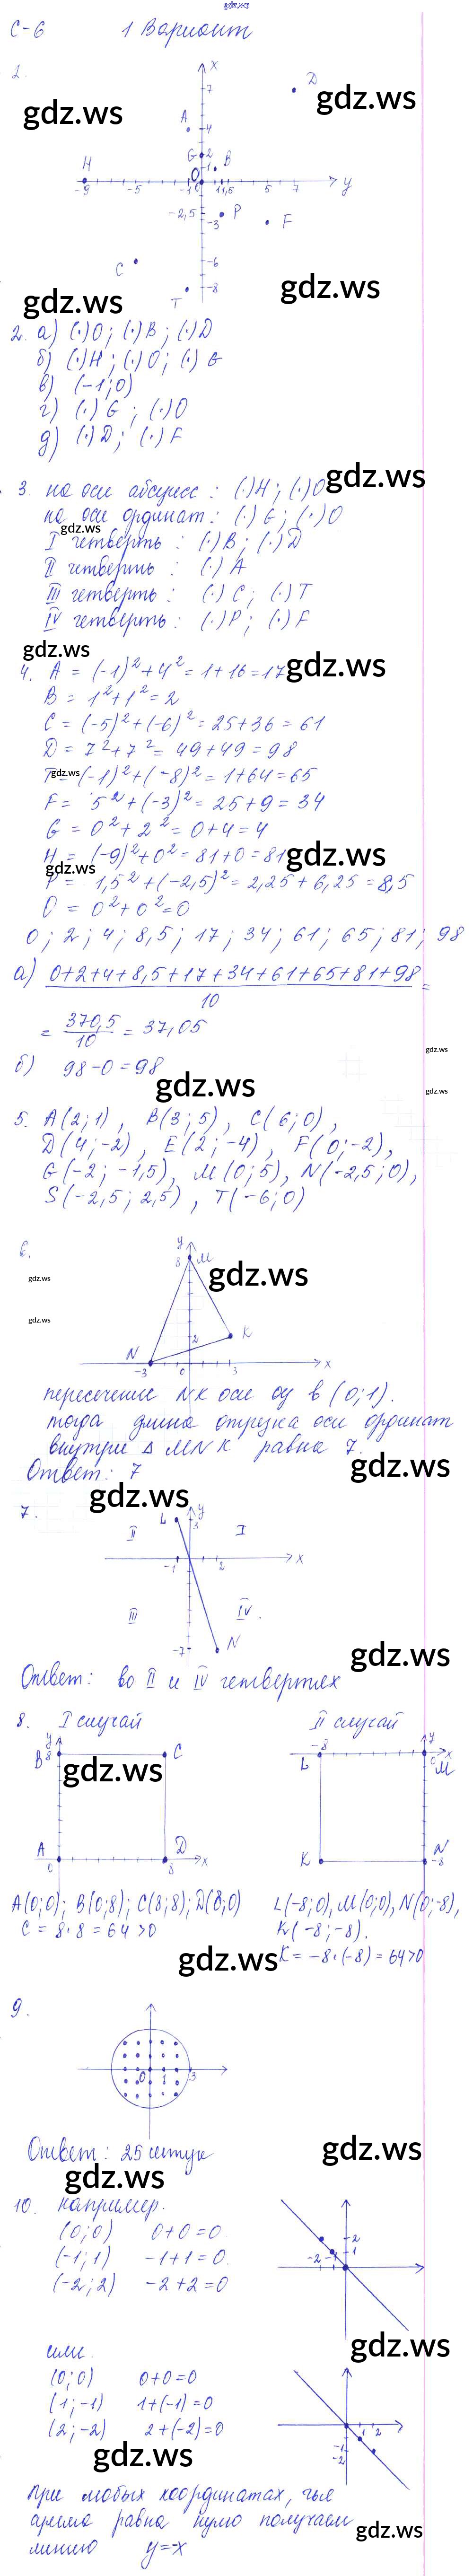 gdz.ws
С-6 1 Вариант
1.
x
D
7
gdz.ws
gdz.ws
A
4
G 2 B
H 1
O
-9 -5 -1 1 1,5 5 7 y
-2,5 P
-3 F
C -6
gdz.ws
T -8
gdz.ws
2. а) (·)O; (·)B; (·)D
б) (·)H; (·)O; (·) G
в) (-1; 0)
г) (·) G; (·)O
д) (·)D; (·)F
gdz.ws
3. на оси абсцисс: (·)H; (·)O
на оси ординат: (·)G; (·)O
gdz.ws
I четверть: (·)B; (·)D
II четверть: (·) A
III четверть: (·) C; (·)T
IV четверть: (·)P; (·)F
gdz.ws
gdz.ws
4. A = (-1)²+4² = 1+16=17
B = 1²+1² = 2
C = (-5)²+(-6)² = 25+36 = 61
D = 7²+7² = 49+49 = 98
gdz.ws
T = (-1)²+(-8)² = 1+64=65
F = 5²+(-3)² = 25+9 = 34
G = 0²+2² = 0+4=4
gdz.ws
H = (-9)²+0² = 81+0=81
gdz.ws
P = 1,5²+(-2,5)² = 2,25+6,25=8,5
O = 0²+0²=0
0; 2; 4; 8,5; 17; 34; 61; 65; 81; 98
а) 0+2+4+8,5+17+34+61+65+81+98 =
10
= 370,5 = 37,05
10
gdz.ws
б) 98-0=98
gdz.ws
gdz.ws
5. A(2; 1), B(3; 5), C(6; 0),
D(4; -2), E(2; -4), F(0; -2),
G(-2; -1,5), M(0; 5), N(-2,5; 0),
S(-2,5; 2,5), T(-6; 0)
6. y
8 M
gdz.ws
gdz.ws
gdz.ws
2 K
N
-3 0 3 x
пересечение NK оси oy в (0; 1).
тогда длина отрезка оси ординат
внутри Δ MNK равна 7.
gdz.ws
Ответ: 7
gdz.ws
7. L y
3
II I
-1 2 x
III IV.
-7 N
gdz.ws
Ответ: во II и IV четвертях
8. I случай II случай
y y
B 8 C -8 0 x
gdz.ws
L M
A D K N
0 8 x -8
A(0; 0); B(0; 8); C(8; 8); D(8; 0) L(-8; 0), M(0; 0), N(0; -8),
C = 8·8 = 64 >0 K(-8; -8).
gdz.ws
K = -8·(-8) = 64>0
9.
0 1 3
Ответ: 25 штук
gdz.ws
gdz.ws
10. например.
(0; 0) 0+0=0
(-1; 1) -1+1=0
(-2; 2) -2+2=0
2
1
-2 -1
gdz.ws
или.
(0; 0) 0+0=0
(1; -1) 1+(-1)=0
(2; -2) 2+(-2)=0
1 2
-1
-2
gdz.ws
при любых координатах, чья
сумма равна нулю получаем
gdz.ws
линию y=-x